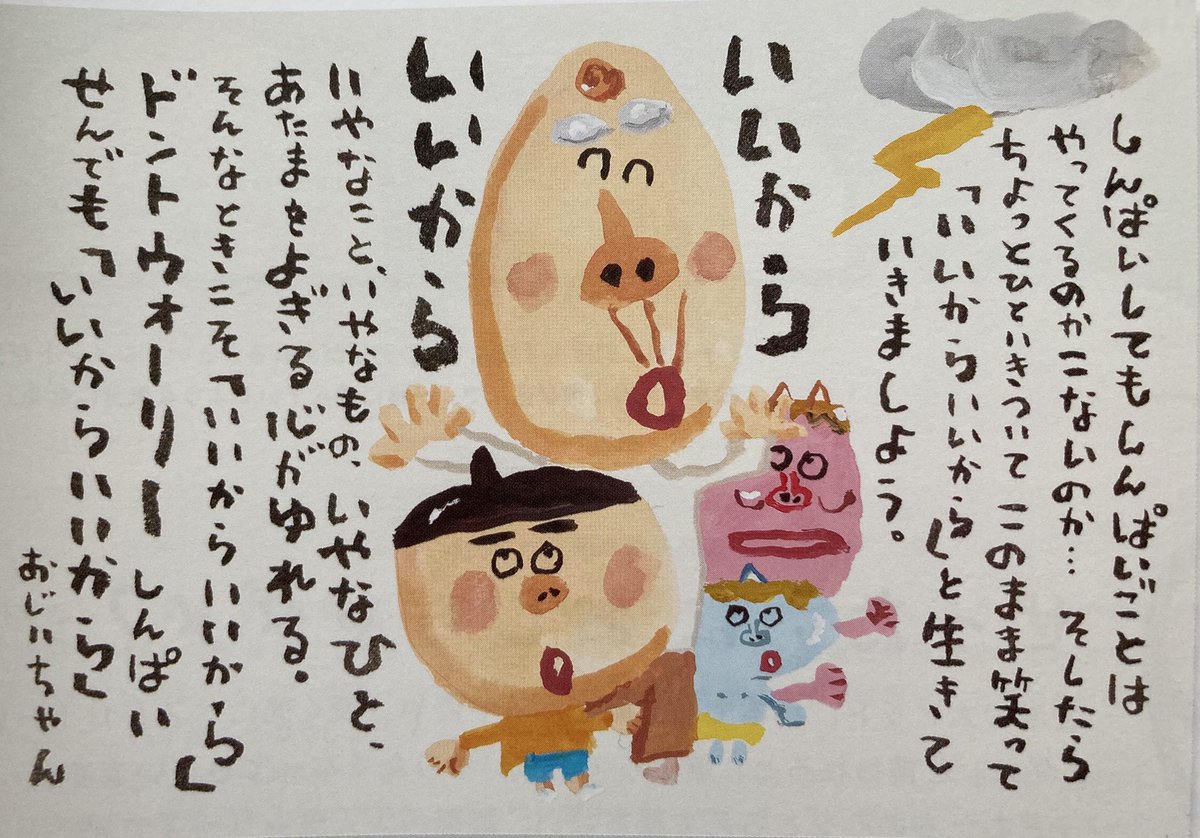 しんぱいしてもしんぱいごとは
やってくるのかこないのか… そしたら
ちょっとひといきついて このまま笑って
「いいからいいから」と生きて
いきましょう。
いいから
いいから
いやなこと、いやなもの、いやなひと、
あたまをよぎる心がゆれる。
そんなときこそ「いいからいいから」
ドントウォーリー しんぱい
せんでも「いいからいいから」
おじいちゃん